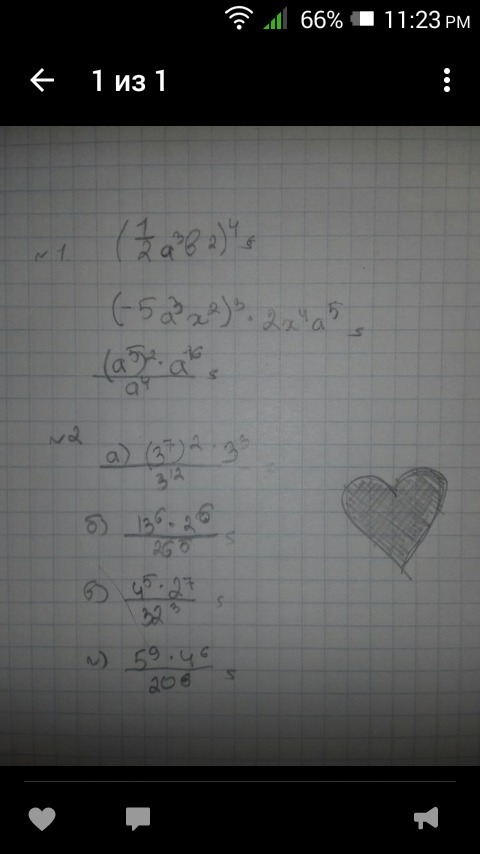 66% 11:23 PM
1 из 1
~1 (1/2 a³b²)⁴ s
(-5a³x²)³ · 2x⁴a⁵ s
(a⁵)² · a¹⁶ / a⁴ s
~2 а) (3⁷)² · 3³ / 3¹²
б) 13⁶ · 2⁶ / 26⁵ s
в) 4⁵ · 2⁷ / 32³ s
г) 5⁹ · 4⁶ / 20⁶ s